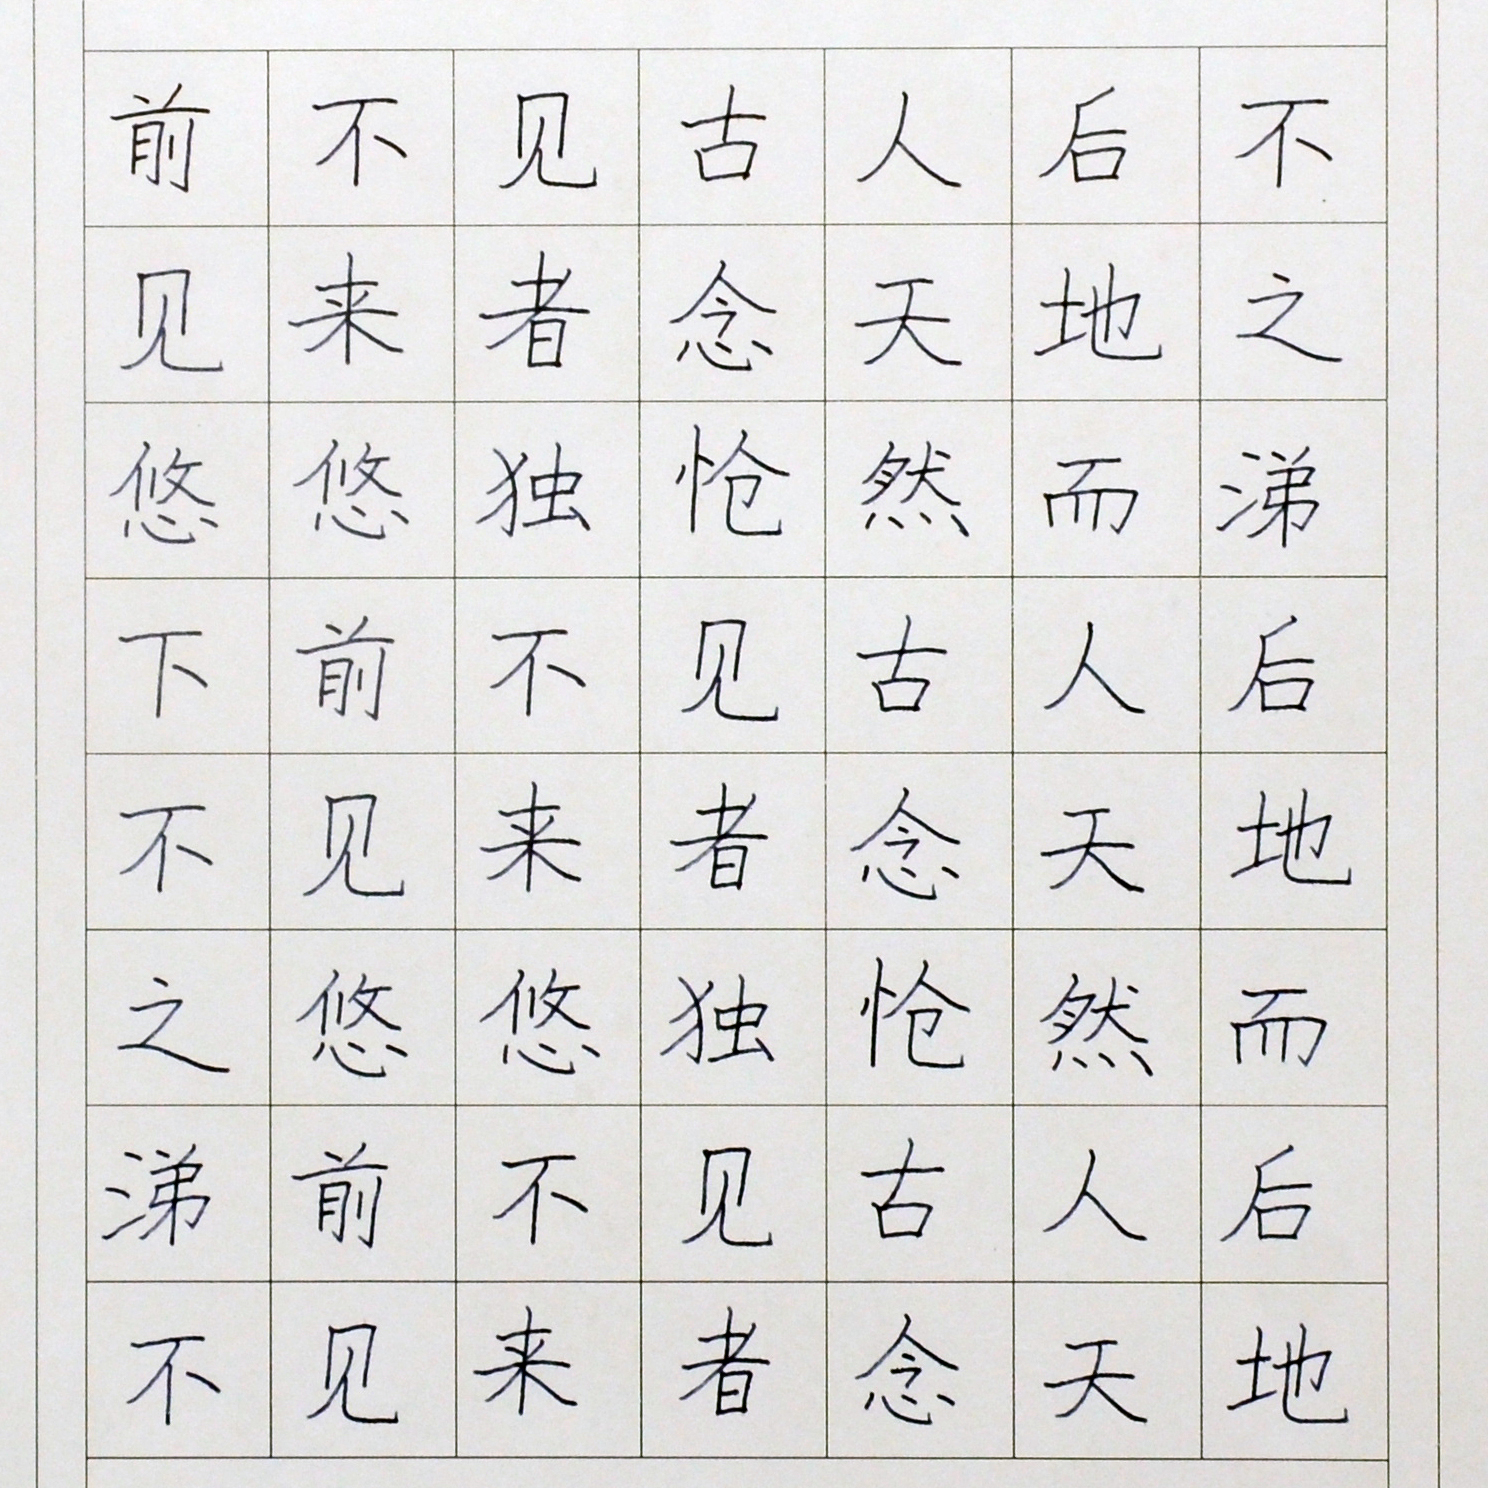 前不见古人后不
见来者念天地之
悠悠独怆然而涕
下前不见古人后
不见来者念天地
之悠悠独怆然而
涕前不见古人后
不见来者念天地